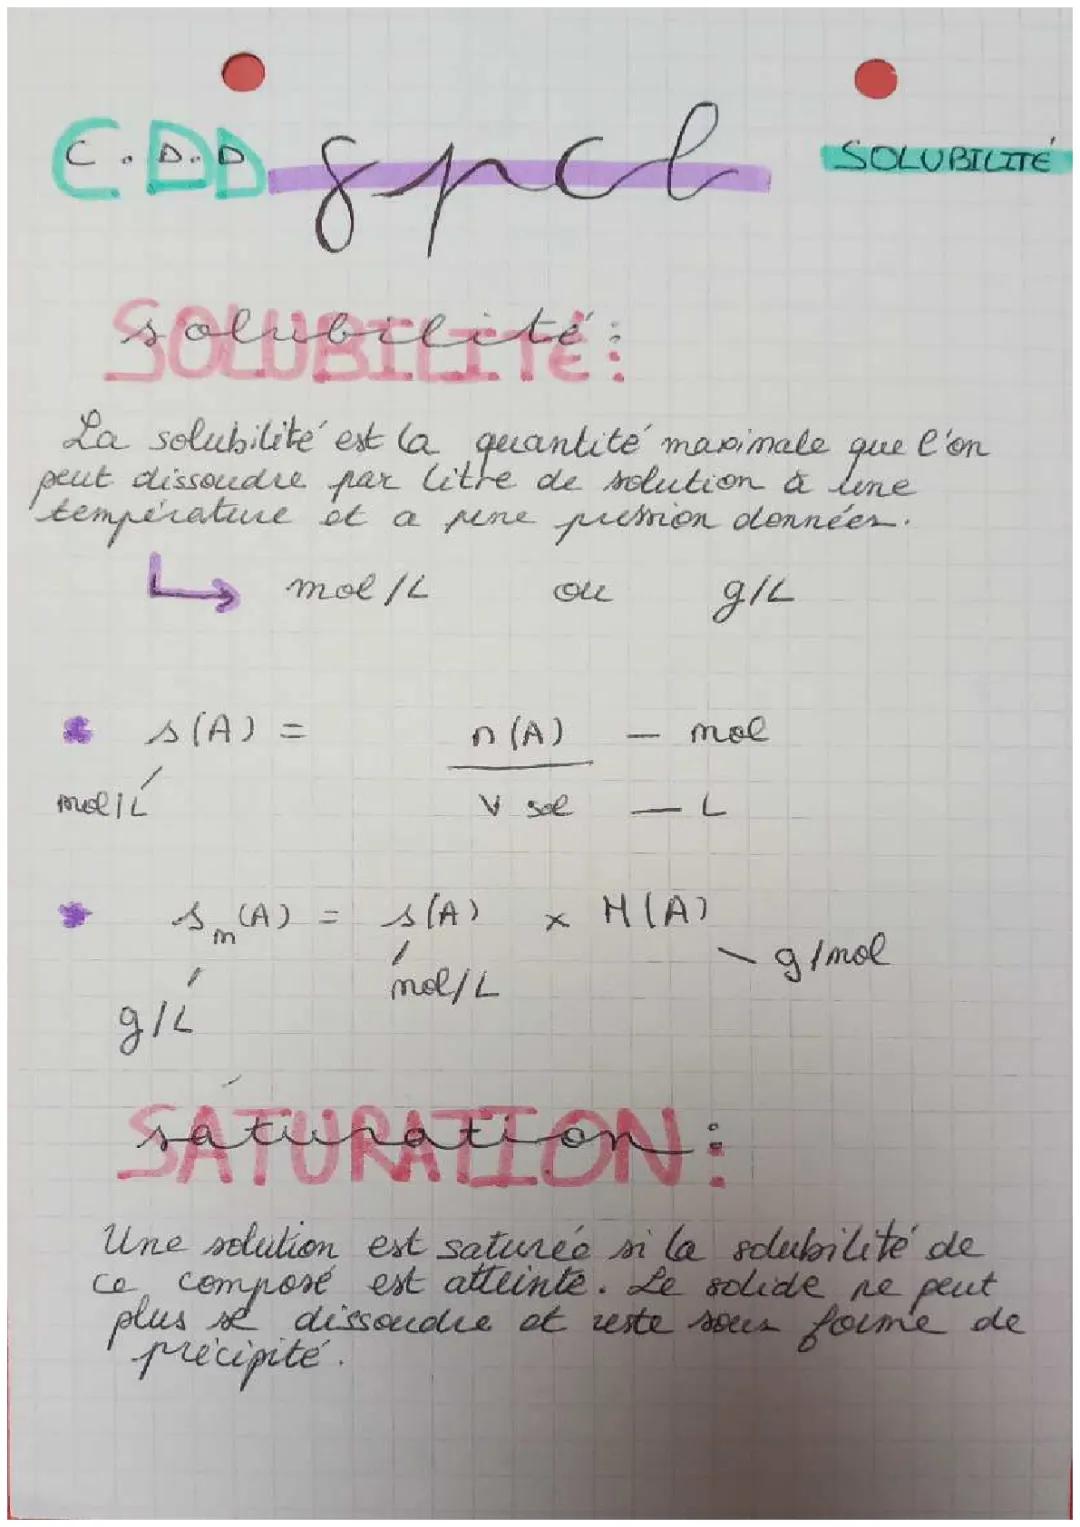 C.D.D spcl SOLUBILITÉ
SOLUBILITÉ:
solubilité:
La solubilité est la quantité maximale que l'on
peut dissoudre par litre de solution à une
température et a une pression données.
mol/L ou g/L
s(A) = n(A) — mol
mol/L V sol — L
s_m(A) = s(A) × M(A)
g/mol
mol/L
g/L
SATURATION:
saturation:
Une solution est saturée si la solubilité de
ce composé est atteinte. Le solide ne peut
plus se dissoudre et reste sous forme de
précipité.